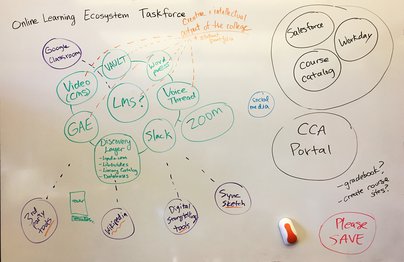 Online Learning Ecosystem Taskforce
Google
Classroom
VAULT
Creative & intellectual
output of the college
Word
press
Video
(CMS)
LMS?
Voice
Thread
GAE
Slack
ZOOM
Discovery
Layer
- Libguides
- Library Catalog
- Databases
Social
media
Salesforce
Workday
Course
Catalog
CCA
Portal
- gradebook?
- create course
sites?
Please
SAVE
3rd
Party
tools
Wikipedia
Digital
Storytelling
tools?
Sync
Sketch